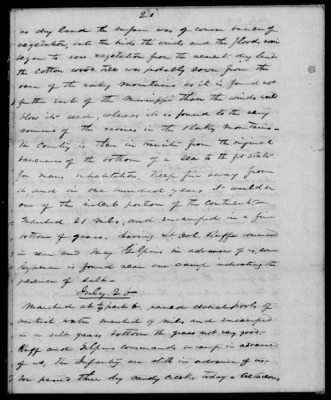 21
as dry land the surface was of course barren of
vegetation, but the birds the winds and the floods soon
began to sow vegetation from the nearest dry land
the cotton wood tree was probably sown from the
base of the rocky mountains as it is found not
further east of the Mississippi than the winds will
blow its seed, whereas it is found to the very
sources of the rivers in the Rocky Mountains.
The Country is then in transition from the original
bareness of the bottom of a sea to the fit state
for man's habitation. Keep fire away from
it and in one hundred years it would be
one of the richest portion of the Continent.
Marched 21 miles, and encamped in a fine
bottom of grass. having Lt. Col. Ruff's command
in rear and Maj Gilpin's in advance of us, some
Gypsum is found near our camp indicating the
presence of salts.
July 26
Marched at ½ past 6, passed several pools of
water marched miles and encamped
in a salt grass bottom the grass not very good
Ruff and Gilpins commands encamp in advance
of us, The Infantry are still in advance of us.
we passed three dry sandy creeks today